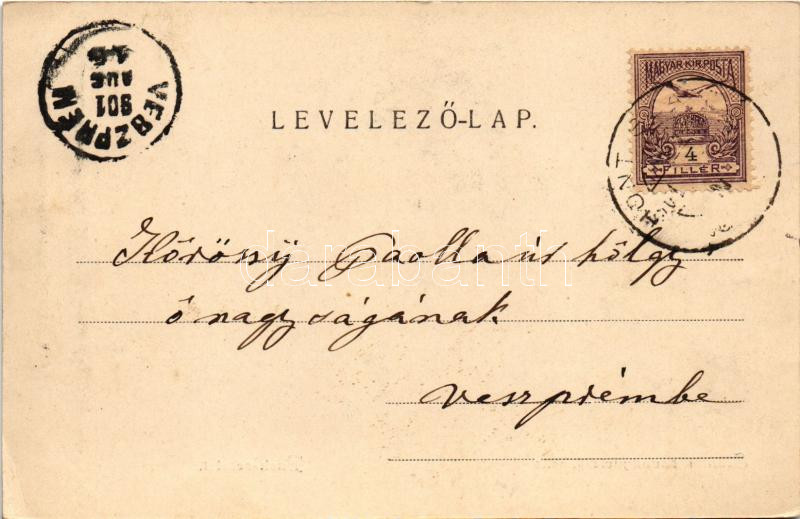 VESZPRÉM
901
AUG
15
MAGYAR KIR. POSTA
4
FILLÉR
LEVELEZŐ-LAP.
Kőrössy Paolla úr hölgy
ő nagyságának
Veszprémbe
darabanth